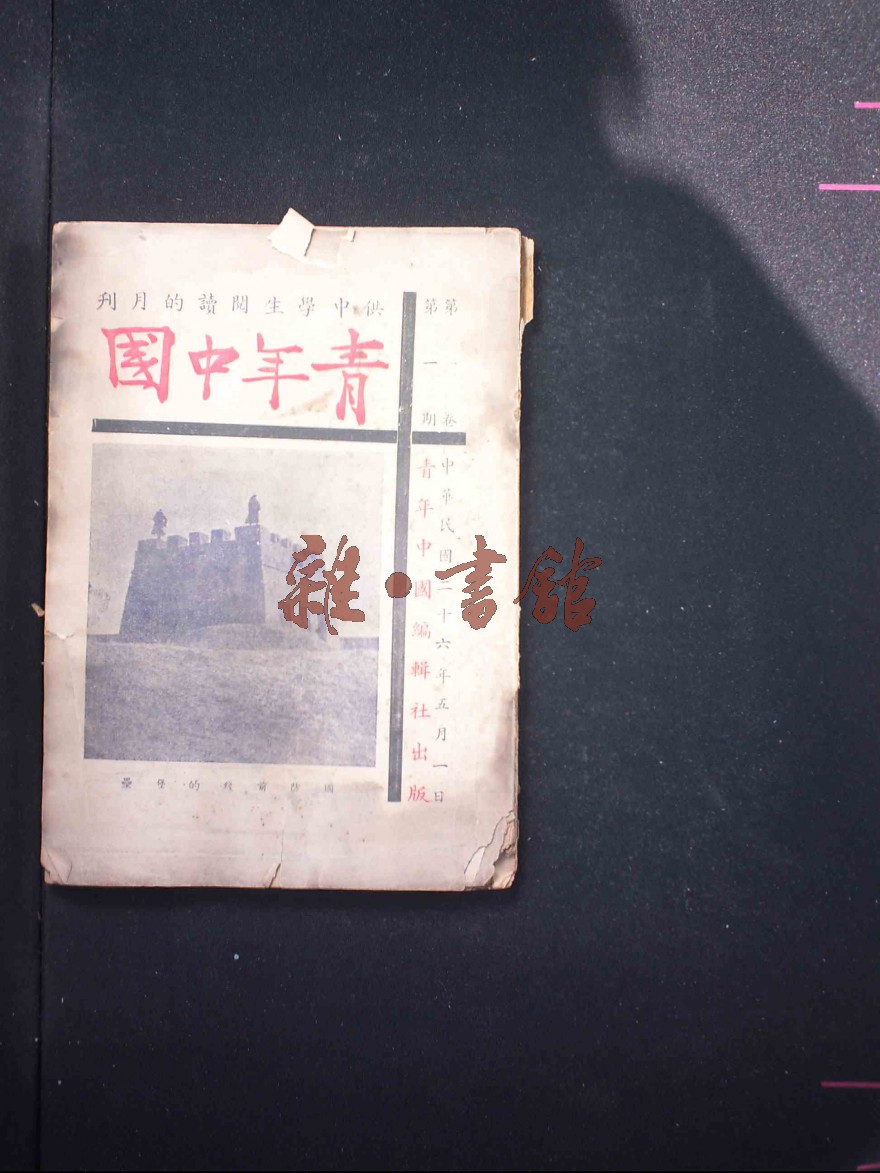 供中學生閱讀的月刊
青年中國
第一卷
第一期
中華民國二十六年五月一日
青年中國編輯社出版
國防前線的堡壘
雜·書館